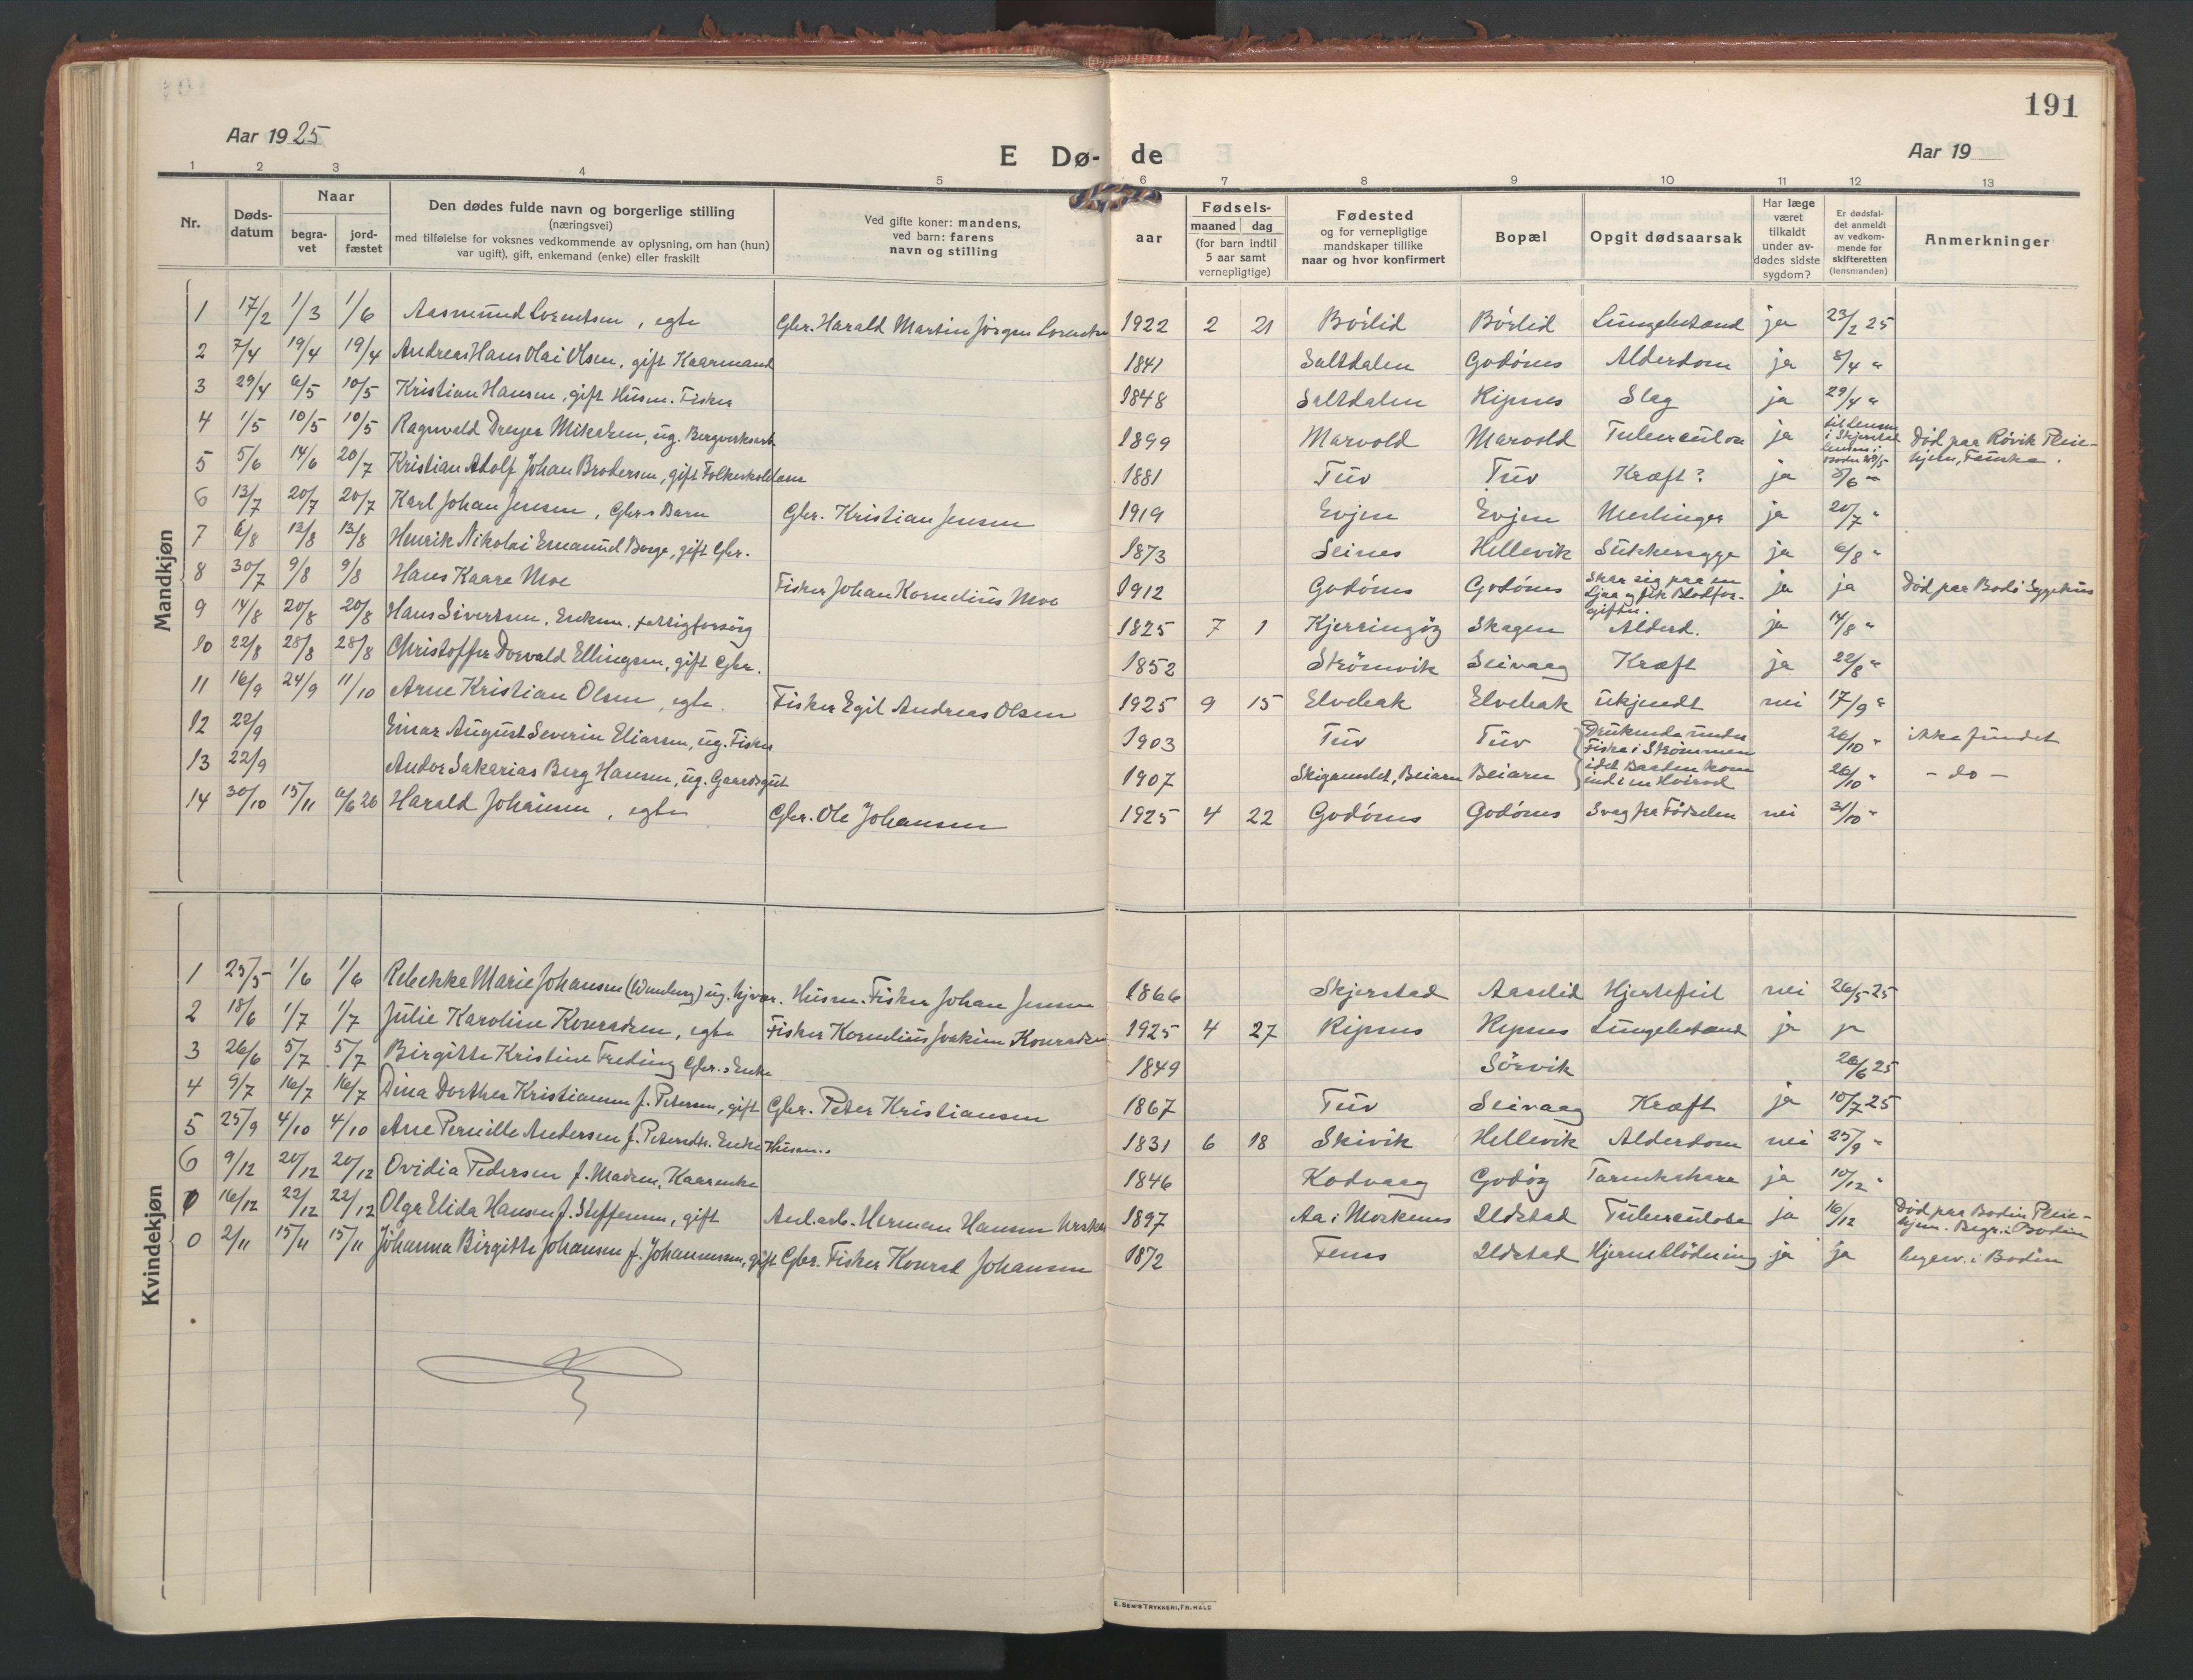 191
Aar 1925
E Dø- de
Aar 19
1 2 3 4 5 6 7 8 9 10 11 12 13
Nr.
Døds-
datum
Naar
begra-
vet
jord-
fæstet
Den dødes fulde navn og borgerlige stilling
(næringsvei)
med tilføielse for voksnes vedkommende av oplysning, om han (hun)
var ugift), gift, enkemand (enke) eller fraskilt
Ved gifte koner: mandens,
ved barn: farens
navn og stilling
Fødsels-
aar
maaned dag
(for barn indtil
5 aar samt
vernepligtige)
Fødested
og for vernepligtige
mandskaper tillike
naar og hvor konfirmert
Bopæl
Opgit dødsaarsak
Har læge
været
tilkaldt
under av-
dødes sidste
sygdom?
Er dødsfal-
det anmeldt
av vedkom-
mende for
skifteretten
(lensmanden)
Anmerkninger
Mandkjøn
1 17/2 1/3 1/6 Aasmund Lorentsen, egte Gbr. Harald Martin Jørgen Lorentsen 1922 2 21 Børlid Børlid Lungebetænd ja 23/2 25
2 7/4 19/4 19/4 Andreas Hans Olai Olsen, gift Kaarmand 1841 Saltdalen Godønes Alderdom ja 8/4 "
3 29/4 6/5 10/5 Kristian Hansen, gift Husm. Fisker 1848 Saltdalen Ripnes Slag ja 29/4 "
4 1/5 10/5 10/5 Ragnvald Dreyer Mikalsen, ug. Bergverksarb. 1899 Marvold Marvold Tuberculose ja til Lensm. i Skjerstad Død paa Røvik Pleie-
hjem, Fauske.
5 5/6 14/6 20/7 Kristian Adolf Johan Brodersen, gift Folkeskolelærer 1881 Tuv Tuv Kræft? ja 5/6 "
6 13/7 20/7 20/7 Karl Johan Jensen, Gbr.s Barn Gbr. Kristian Jensen 1919 Evjen Evjen Meslinger ja 20/7 "
7 6/8 13/8 13/8 Henrik Nikolai Emanuel Borge, gift Gbr. 1873 Seines Hellevik Sukkersyge ja 6/8 "
8 30/7 9/8 9/8 Hans Kaare Moe Fisker Johan Kornelius Moe 1912 Godønes Godønes Skar sig paa en
Ljaa og fik Blodfor-
giftn. ja ja Død paa Bodø Sygehus
9 14/8 20/8 20/8 Hans Sivertsen, Enkem. fattigforsørg 1825 7 1 Kjerringøy Skagen Alderd. ja 14/8 "
10 22/8 28/8 28/8 Christoffer Dorvald Ellingsen, gift Gbr. 1852 Strømvik Seivaag Kræft ja 22/8 "
11 16/9 24/9 11/10 Arne Kristian Olsen, egte. Fisker Egil Andreas Olsen 1925 9 15 Elvebak Elvebak ukjendt nei 17/9 "
12 22/9 Einar August Severin Eliassen, ug. Fisker 1903 Tuv Tuv Druknede under
Fiske i Strømmen 26/10 " ikke fundet
13 22/9 Andor Sakarias Berg Hansen, ug. Gaardsgut 1907 Beiarn Beiarn idet Baaden kom
ind i en Hvirvel 26/10 " - do -
14 30/10 15/11 6/6 26 Harald Johansen, egte Gbr. Ole Johansen 1925 4 22 Godønes Godønes Svag fra Fødselen nei 31/10 "
Kvindekjøn
1 25/5 1/6 1/6 Rebekke Marie Johansen ug. hjvær. Husm. Fisker Johan Jensen 1866 Skjerstad Aaselid Hjertefeil nei 26/5 25
2 18/6 1/7 1/7 Julie Karoline Konradsen, egte Fisker Kornelius Joakim Konradsen 1925 4 27 Ripnes Ripnes Lungebetænd ja ja
3 26/6 5/7 5/7 Birgitte Kristine Freding Gbr.s Enke 1849 Sørvik 26/6 25
4 9/7 16/7 16/7 Dina Dorthea Kristiansen f. Petersen, gift Gbr. Peter Kristiansen 1867 Tuv Seivaag Kræft ja 10/7 25
5 25/9 4/10 4/10 Ane Pernille Andersen f. Petersdtr. Enke Husm. 1831 6 18 Skivik Hellevik Alderdom nei 25/9 "
6 9/12 20/12 20/12 Ovidia Pedersen f. Madsen, Kaarenke 1846 Kodvaag Godøy ja 10/12 "
0 16/12 22/12 22/12 Olga Elida Hansen f. Steffensen, gift Anl.arb. Herman Hansen 1897 Aa i Moskenes Ildstad Tuberculose ja 16/12 Død paa Bodin Pleie-
hjem. Begr. i Bodin
0 2/11 15/11 15/11 Johanna Birgitte Johansen f. Johannessen, gift Gbr. Fisker Konrad Johansen 1872 Fenes Ildstad Hjerneblødning ja ja begrv. i Bodin
E. SEM'S TRYKKERI, FR.HALD